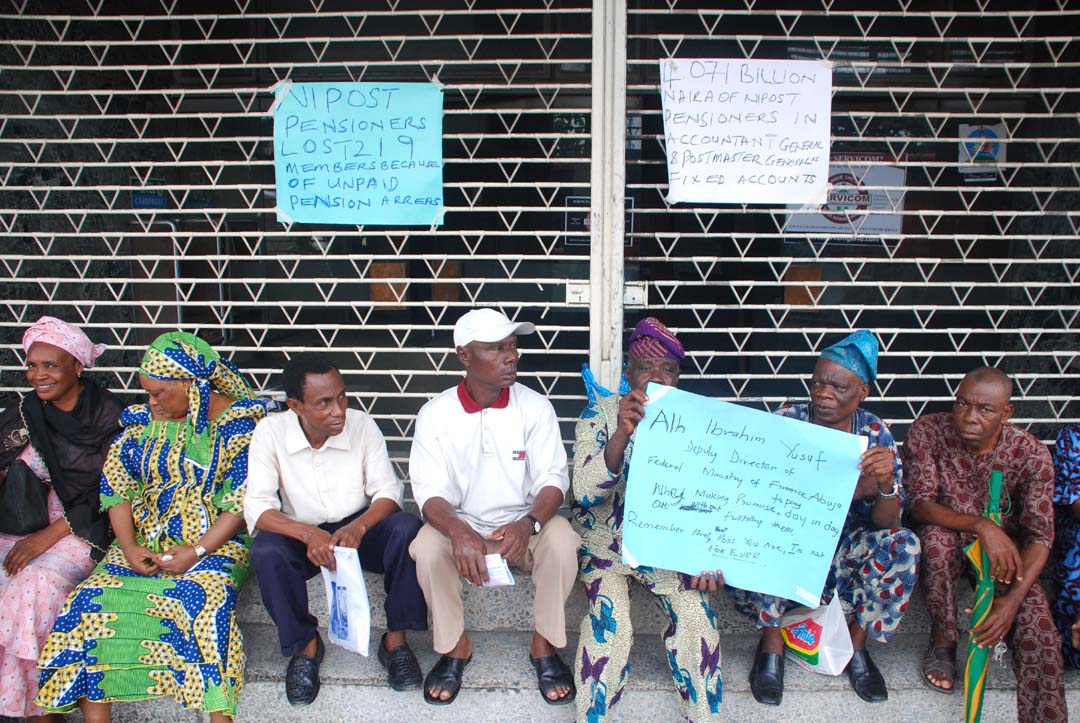 NIPOST
PENSIONERS
LOST 219
MEMBERS BECAUSE
OF UNPAID
PENSION ARREAS
4 071 BILLION
NAIRA OF NIPOST
PENSIONERS IN
ACCOUNTANT GENERAL
& POSTMASTER GENERAL'S
FIXED ACCOUNTS
SERVICOM?
SERVICOM
Alh Ibrahim Yusuf
Deputy Director of
Federal Ministry of Finance Abuja
Making Promises to pay
day in day
out without fulfilling them,
Remember that Post You Are, Is not
FOR EVER!